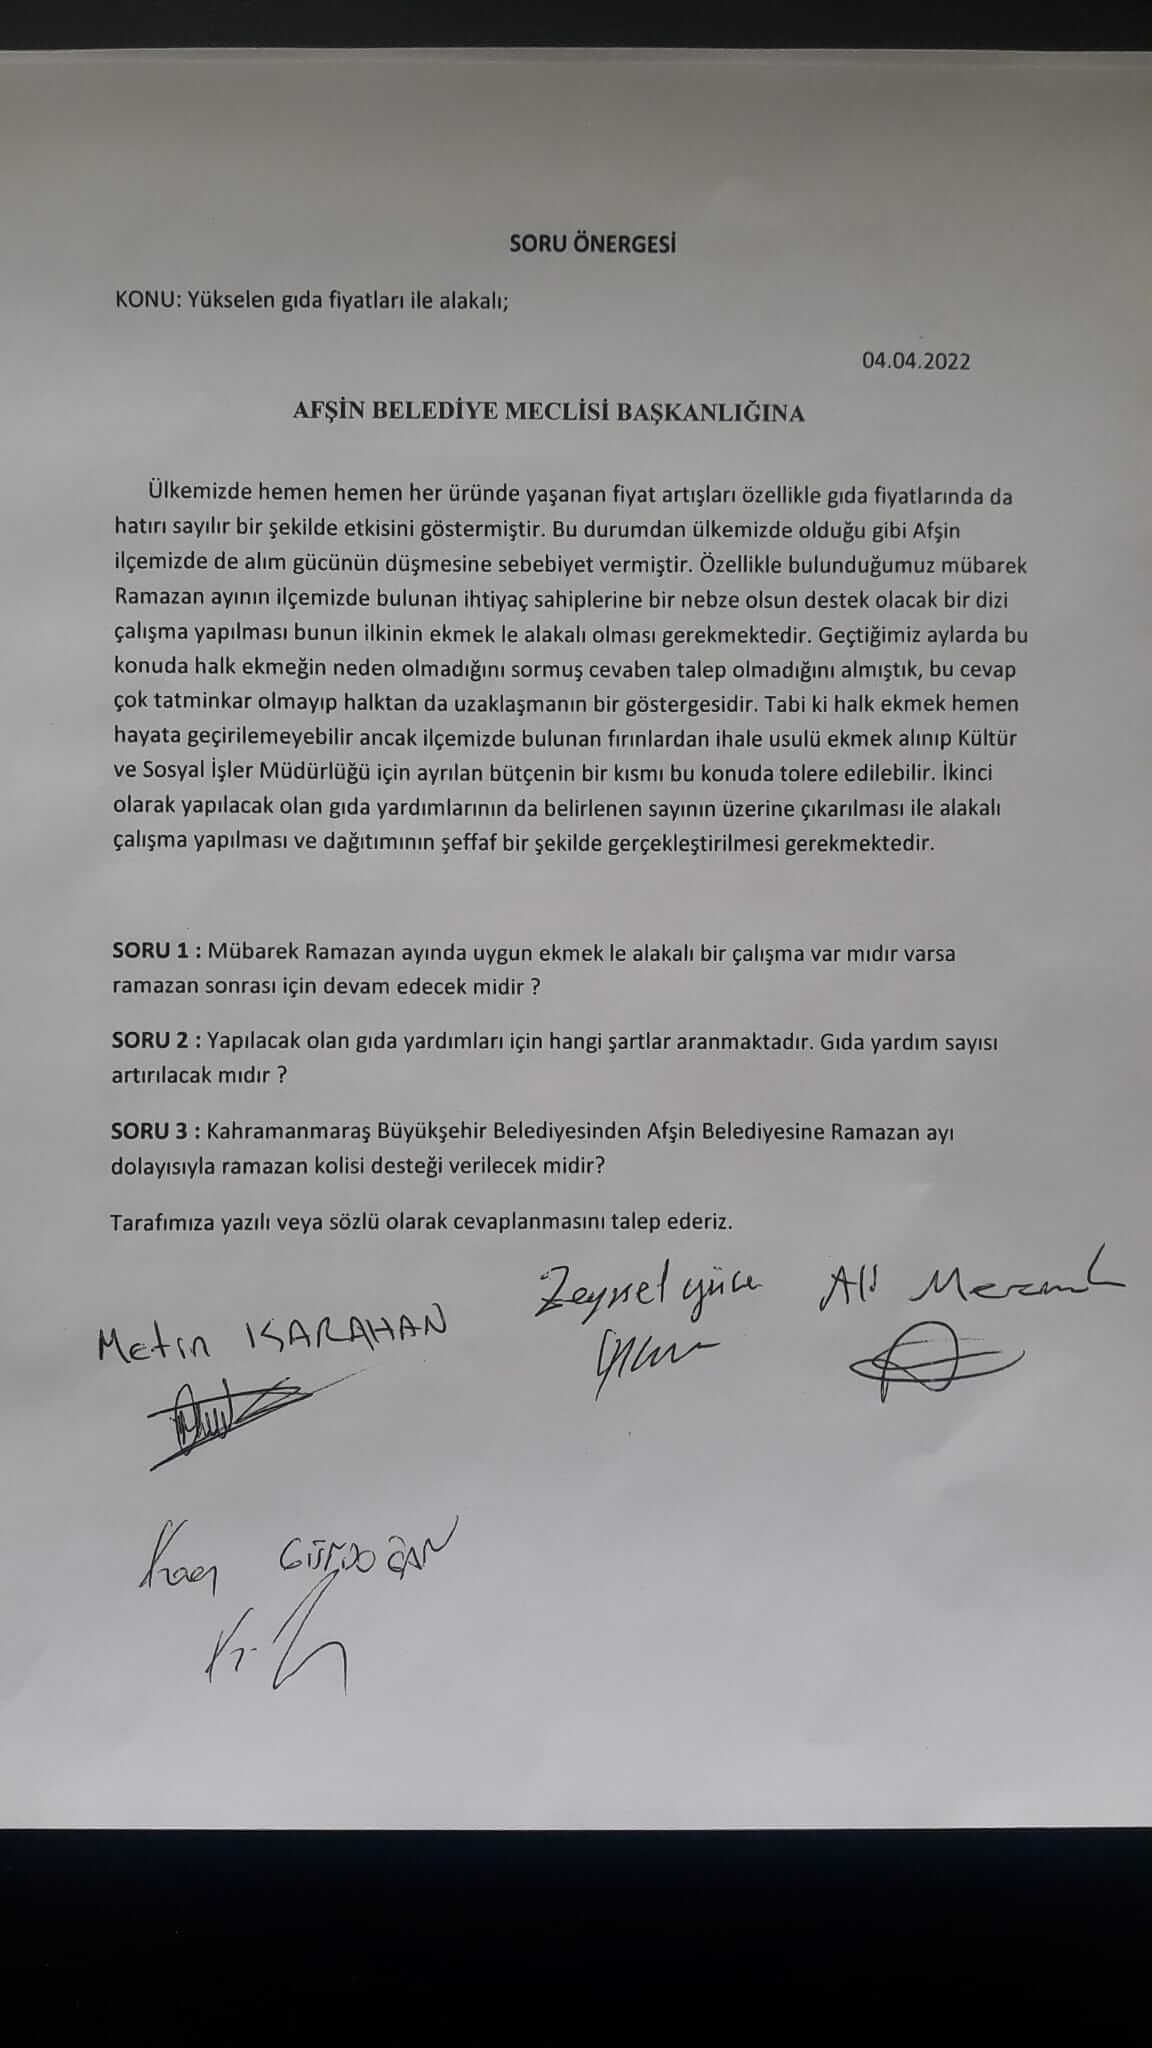 SORU ÖNERGESİ
KONU: Yükselen gıda fiyatları ile alakalı;
04.04.2022
AFŞİN BELEDİYE MECLİSİ BAŞKANLIĞINA
Ülkemizde hemen hemen her üründe yaşanan fiyat artışları özellikle gıda fiyatlarında da
hatırı sayılır bir şekilde etkisini göstermiştir. Bu durumdan ülkemizde olduğu gibi Afşin
ilçemizde de alım gücünün düşmesine sebebiyet vermiştir. Özellikle bulunduğumuz mübarek
Ramazan ayının ilçemizde bulunan ihtiyaç sahiplerine bir nebze olsun destek olacak bir dizi
çalışma yapılması bunun ilkinin ekmek le alakalı olması gerekmektedir. Geçtiğimiz aylarda bu
konuda halk ekmeğin neden olmadığını sormuş cevaben talep olmadığını almıştık, bu cevap
çok tatminkar olmayıp halktan da uzaklaşmanın bir göstergesidir. Tabi ki halk ekmek hemen
hayata geçirilemeyebilir ancak ilçemizde bulunan fırınlardan ihale usulü ekmek alınıp Kültür
ve Sosyal İşler Müdürlüğü için ayrılan bütçenin bir kısmı bu konuda tolere edilebilir. İkinci
olarak yapılacak olan gıda yardımlarının da belirlenen sayının üzerine çıkarılması ile alakalı
çalışma yapılması ve dağıtımının şeffaf bir şekilde gerçekleştirilmesi gerekmektedir.
SORU 1 : Mübarek Ramazan ayında uygun ekmek le alakalı bir çalışma var mıdır varsa
ramazan sonrası için devam edecek midir ?
SORU 2 : Yapılacak olan gıda yardımları için hangi şartlar aranmaktadır. Gıda yardım sayısı
artırılacak mıdır ?
SORU 3 : Kahramanmaraş Büyükşehir Belediyesinden Afşin Belediyesine Ramazan ayı
dolayısıyla ramazan kolisi desteği verilecek midir?
Tarafımıza yazılı veya sözlü olarak cevaplanmasını talep ederiz.
Metin KARAHAN
Zeynel yüce
Ali
GÜRDOĞAN